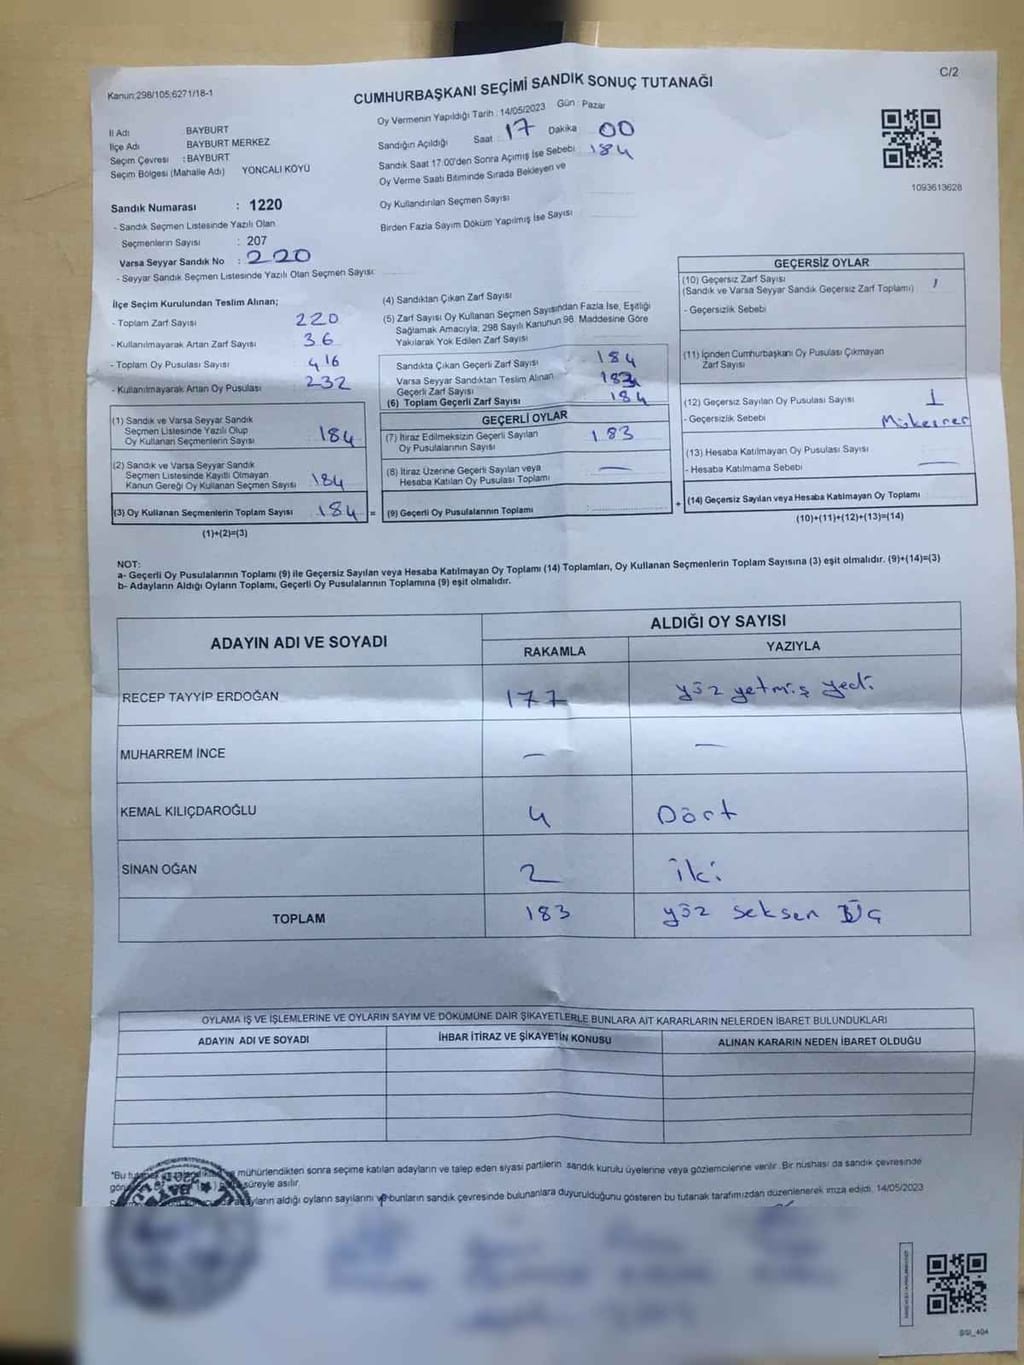 C/2
Kanun:298/105;6271/18-1
CUMHURBAŞKANI SEÇİMİ SANDIK SONUÇ TUTANAĞI
Oy Vermenin Yapıldığı Tarih : 14/05/2023 Gün : Pazar
İl Adı BAYBURT
İlçe Adı BAYBURT MERKEZ
Seçim Çevresi : BAYBURT
Seçim Bölgesi (Mahalle Adı) YONCALI KÖYÜ
Sandık Numarası : 1220
- Sandık Seçmen Listesinde Yazılı Olan
Seçmenlerin Sayısı : 207
Varsa Seyyar Sandık No : 220
- Seyyar Sandık Seçmen Listesinde Yazılı Olan Seçmen Sayısı:
Sandığın Açıldığı Saat : 17 Dakika 00
Sandık Saat 17:00'den Sonra Açılmış İse Sebebi : 184
Oy Verme Saati Bitiminde Sırada Bekleyen ve
Oy Kullandırılan Seçmen Sayısı
Birden Fazla Sayım Döküm Yapılmış İse Sayısı
1093613628
İlçe Seçim Kurulundan Teslim Alınan;
- Toplam Zarf Sayısı 220
- Kullanılmayarak Artan Zarf Sayısı : 36
- Toplam Oy Pusulası Sayısı : 416
- Kullanılmayarak Artan Oy Pusulası : 232
(1) Sandık ve Varsa Seyyar Sandık
Seçmen Listesinde Yazılı Olup
Oy Kullanan Seçmenlerin Sayısı 184
(2) Sandık ve Varsa Seyyar Sandık
Seçmen Listesinde Kayıtlı Olmayan
Kanun Gereği Oy Kullanan Seçmen Sayısı 184
(3) Oy Kullanan Seçmenlerin Toplam Sayısı : 184 =
(1)+(2)=(3)
(4) Sandıktan Çıkan Zarf Sayısı
(5) Zarf Sayısı Oy Kullanan Seçmen Sayısından Fazla İse, Eşitliği
Sağlamak Amacıyla, 298 Sayılı Kanunun 98. Maddesine Göre
Yakılarak Yok Edilen Zarf Sayısı
Sandıkta Çıkan Geçerli Zarf Sayısı 184
Varsa Seyyar Sandıktan Teslim Alınan
Geçerli Zarf Sayısı
(6) Toplam Geçerli Zarf Sayısı 184
GEÇERLİ OYLAR
(7) İtiraz Edilmeksizin Geçerli Sayılan
Oy Pusulalarının Sayısı 183
(8) İtiraz Üzerine Geçerli Sayılan veya
Hesaba Katılan Oy Pusulası Toplamı —
(9) Geçerli Oy Pusulalarının Toplamı : +
GEÇERSİZ OYLAR
(10) Geçersiz Zarf Sayısı
(Sandık ve Varsa Seyyar Sandık Geçersiz Zarf Toplamı)
- Geçersizlik Sebebi
(11) İçinden Cumhurbaşkanı Oy Pusulası Çıkmayan
Zarf Sayısı
(12) Geçersiz Sayılan Oy Pusulası Sayısı 1
- Geçersizlik Sebebi Mükerrer
(13) Hesaba Katılmayan Oy Pusulası Sayısı
- Hesaba Katılmama Sebebi —
(14) Geçersiz Sayılan veya Hesaba Katılmayan Oy Toplamı
(10)+(11)+(12)+(13)=(14)
NOT:
a- Geçerli Oy Pusulalarının Toplamı (9) ile Geçersiz Sayılan veya Hesaba Katılmayan Oy Toplamı (14) Toplamları, Oy Kullanan Seçmenlerin Toplam Sayısına (3) eşit olmalıdır. (9)+(14)=(3)
b- Adayların Aldığı Oyların Toplamı, Geçerli Oy Pusulalarının Toplamına (9) eşit olmalıdır.
ADAYIN ADI VE SOYADI
ALDIĞI OY SAYISI
RAKAMLA YAZIYLA
RECEP TAYYİP ERDOĞAN 177 yüz yetmiş yedi
MUHARREM İNCE — —
KEMAL KILIÇDAROĞLU 4 Dört
SİNAN OĞAN 2 iki
TOPLAM 183 yüz seksen üç
OYLAMA İŞ VE İŞLEMLERİNE VE OYLARIN SAYIM VE DÖKÜMÜNE DAİR ŞİKAYETLERLE BUNLARA AİT KARARLARIN NELERDEN İBARET BULUNDUKLARI
ADAYIN ADI VE SOYADI İHBAR İTİRAZ VE ŞİKAYETİN KONUSU ALINAN KARARIN NEDEN İBARET OLDUĞU
mühürlendikten sonra seçime katılan adayların ve talep eden siyasi partilerin sandık kurulu üyelerine veya gözlemcilerine verilir. Bir nüshası da sandık çevresinde
süreyle asılır.
aldığı oyların sayılarını ve bunların sandık çevresinde bulunanlara duyurulduğunu gösteren bu tutanak tarafımızdan düzenlenerek imza edildi. 14/05/2023